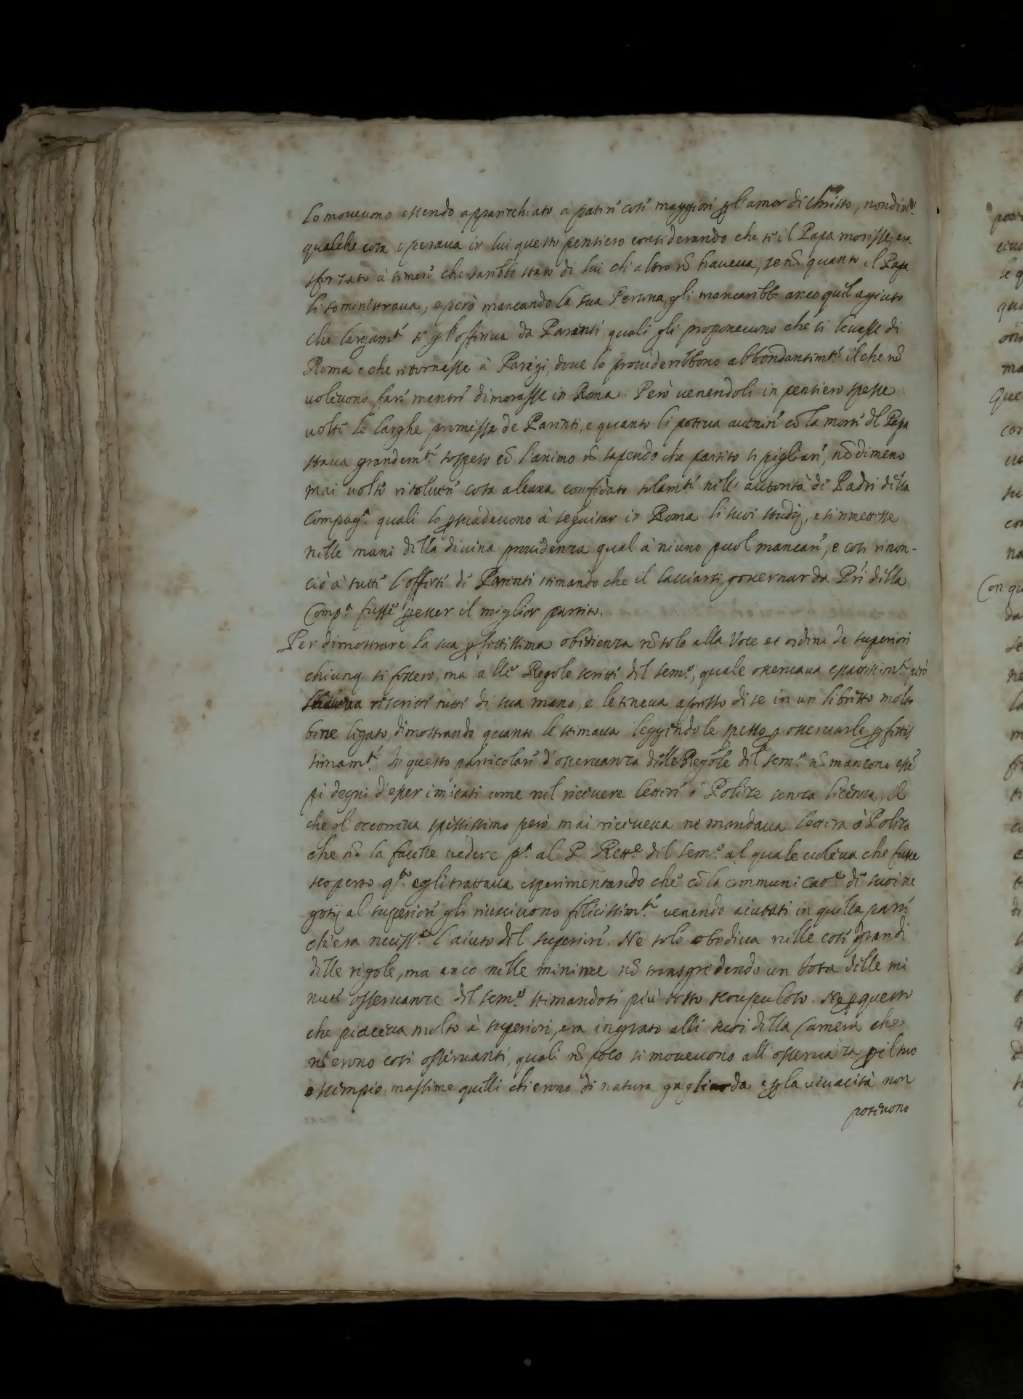 lo moueuono essendo apparechiato à patir cose maggiori p l'amor di Christo, nondim.º
qualche cosa operaua in lui questo pensiero considerando che se il Papa morisse, era
sforzato à temer che sarebbe stato di lui ch'altro nõ haueua, se nõ quanto il Papa
li somministraua, e però mancando la sua Persona, gli mancarebbe anco quel agiuto
che largam.te se gl'offriua da Parenti quali gli proponeuono che si leuasse di
Roma e che ritornasse à Parigi, doue lo prouederebbono abbondantemte il che nõ
voleuono fare mentre dimorasse in Roma. Però uenendoli in pensiero spesse
uolte le larghe promesse de Parenti, e quanto li poteua auenire cõ la morte del Papa
staua grandem.te sospeso cõ l'animo nõ sapendo che partito si pigliare, nõdimeno
mai uolse risoluere cosa alcuna confidato solamte nelle autorità di Padri della
Compag.ª quali lo psuadeuono à seguitar in Roma li suoi studij, e si rimettesse
nelle mani della diuina prouidenza qual à niuno puol mancare, e così rinon-
ciò à tutte l'offerte di Parenti stimando che il lasciarsi gouernar da Pri della
Comp.ª fusse p esser il miglior partito.
Per dimostrare la sua pfettissima obedienza nõ solo alla Voce et ordini de superiori
chiunq. si fossero, ma alle Regole scritte del sem.º, quale osseruaua però
haueua riscritte tutte di sua mano, e le teneua apresso di se in un libretto molto
bene ligato, dimostrando quanto le stimaua leggendole spesso p osseruarle pfettis
simam.te. In questo particolare d'osseruanza delle Regole del sem.º nõ mancono esse
pi degni d'esser imitati come nel riceuere lettere ò Polize senza licenza, il
che gl'occorreua spessissimo però mai riceueua ne mandaua lettera ò Poliza
che nõ la facesse uedere p.ª al P. Rett.re del sem.º al quale uoleua che fusse
scoperto q.to egli trattaua esperimentando che cõ la communicao.ne di suoi ne
gotij al superiore gli riusciuono felicissim.te uenendo aiutati in quella parte
ch'era necess.º l'aiuto del superiore. Ne solo obediua nelle cose grandi
delle regole, ma anco nelle minime nõ transgredendo un iota delle mi
nute osseruanze del sem.º stimandosi più tosto scrupuloso. Ne p questo
che piaceua molto à superiori, era ingrato alli suoi della Camera che
nõ erono così osseruanti, quali nõ poco si moueuono all'osseruãza p il suo
essempio massime quelli ch'erono di natura gagliarda e p la uiuacità non
poteuono